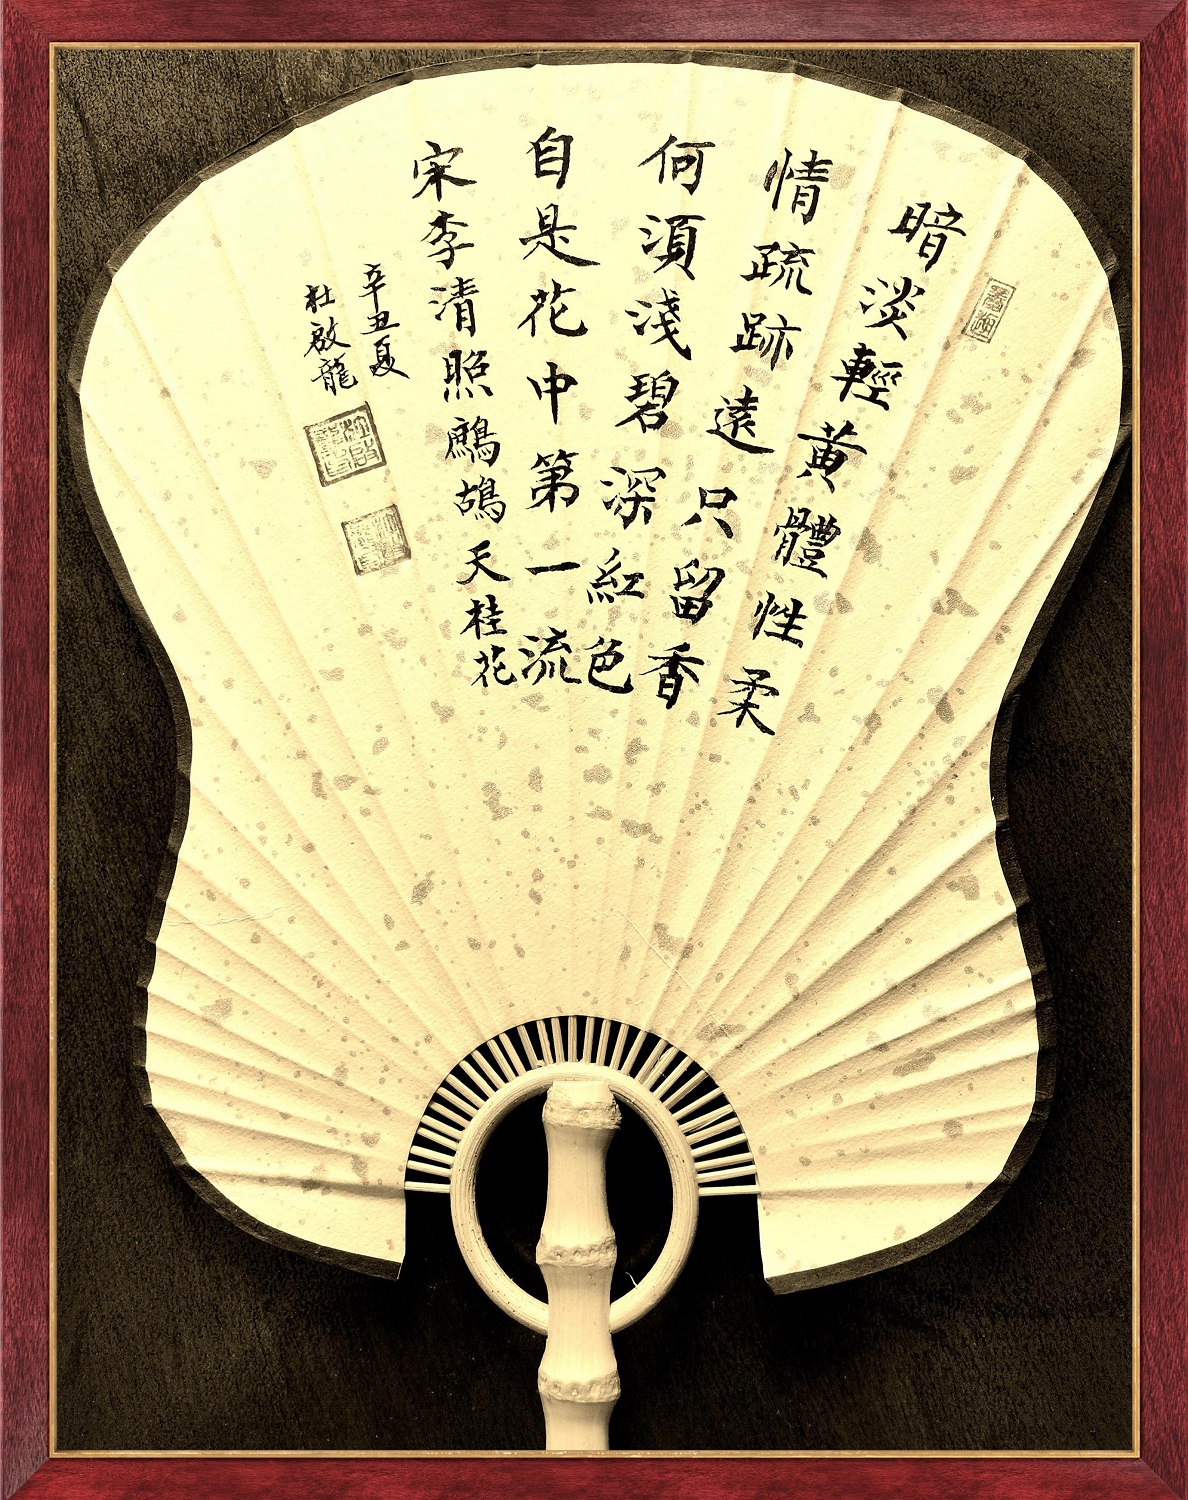 暗淡輕黄體性柔
情疏跡遠只留香
何湏淺碧深紅色
自是花中第一流
宋李清照鷓鴣天桂花
辛丑夏
杜啟龍